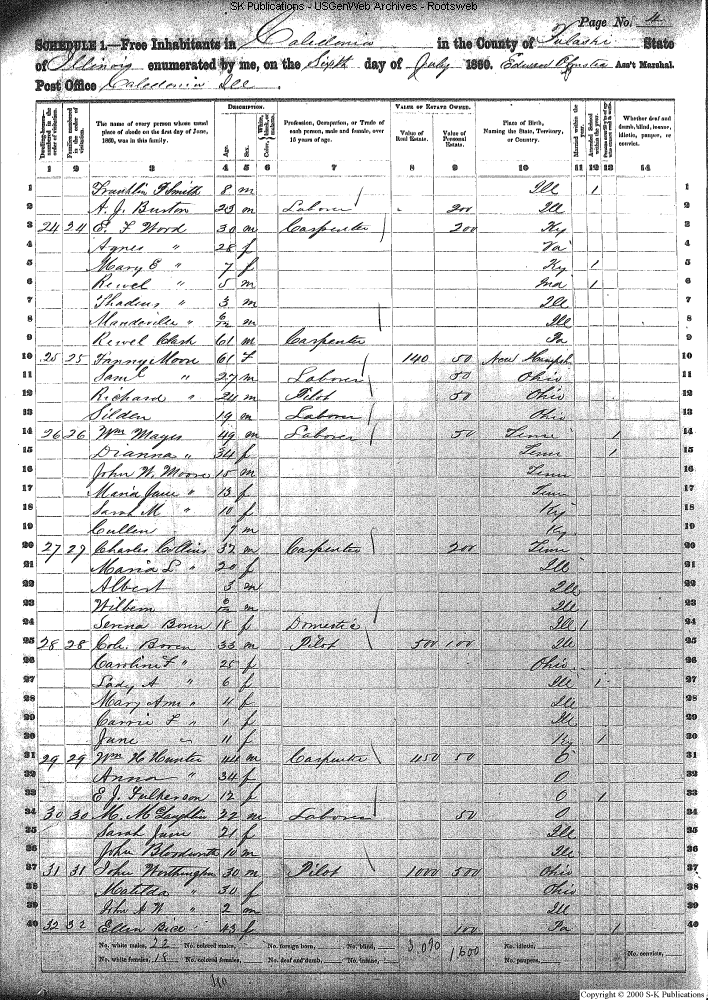 SK Publications - USGenWeb Archives - Rootsweb
Page No. 4
SCHEDULE 1.—Free Inhabitants in Caledonia in the County of Pulaski State
of Illinois enumerated by me, on the Sixth day of July 1860. Ass't Marshal.
Post Office Caledonia Ill
Dwelling-houses—numbered in the order of visitation.
Families numbered in the order of visitation.
The name of every person whose usual place of abode on the first day of June, 1860, was in this family.
DESCRIPTION.
Age.
Sex.
Color,
Profession, Occupation, or Trade of each person, male and female, over 15 years of age.
VALUE OF ESTATE OWNED.
Value of Real Estate.
Value of Personal Estate.
Place of Birth, Naming the State, Territory, or Country.
Married within the year.
Attended School within the year.
Whether deaf and dumb, blind, insane, idiotic, pauper, or convict.
1 2 3 4 5 6 7 8 9 10 11 12 13 14
1 Franklin Smith 8 m Ill 1 1
2 A. J. Burton 23 m Laborer 200 Ill 2
3 24 24 E. F Wood 30 m Carpenter 200 Ky 3
4 Agnes " 28 f Va 4
5 Mary E " 7 f Ky 1 5
6 Rewel " 5 m Ind 1 6
7 Thadeus " 3 m Ill 7
8 Mandeville " m Ill 8
9 Rewel Clark 61 m Carpenter Pa 9
10 25 25 Fanny Moore 61 f 140 50 New Hampsh 10
11 Saml " 27 m Laborer 50 Ohio 11
12 Richard " 24 m Pilot 50 Ohio 12
13 Silden 19 m Laborer Ohio 13
14 26 26 Wm Mayes 49 m Laborer 50 Tenn 1 14
15 Dianna " 34 f Tenn 1 15
16 John W. Moore 15 m Tenn 16
17 Maria Jane " 13 f Tenn 17
18 Sarah M " 10 f Ky 18
19 Cullen 7 m Ky 19
20 27 27 Charles Collins 32 m Carpenter 200 Tenn 20
21 Maria L " 20 f Ill 21
22 Albert 3 m Ill 22
23 Wilbern m Ill 23
24 Serena 18 f Domestic Ill 1 24
25 28 28 Cole Boren 33 m Pilot 500 100 Ill 25
26 Caroline F " 25 f Ohio 26
27 Lady A " 6 f Ill 1 27
28 Mary Ann " 4 f Ill 28
29 Carrie F " 1 f Ill 29
30 Jane " 11 f Ky 1 30
31 29 29 Wm H Hunter 44 m Carpenter 450 50 O 31
32 Anna " 34 f O 32
33 E J. Fulkerson 12 f O 1 33
34 30 30 M. McLaughlin 22 m Laborer 50 O 34
35 Sarah Jane 21 f Ill 35
36 John Bloodworth 10 m Ill 36
37 31 31 John Worthington 30 m Pilot 1000 500 Ohio 37
38 Matilda " 30 f Ohio 38
39 John A W " 2 m Ill 39
40 32 32 Ellen Bice 43 f 100 Pa 1 40
No. white males, 22 No. colored males, No. foreign born, No. blind, 3,090 1600 No. idiotic,
No. white females, 18 No. colored females, No. deaf and dumb, No. insane, No. paupers, No. convicts,
Copyright © 2000 S-K Publications